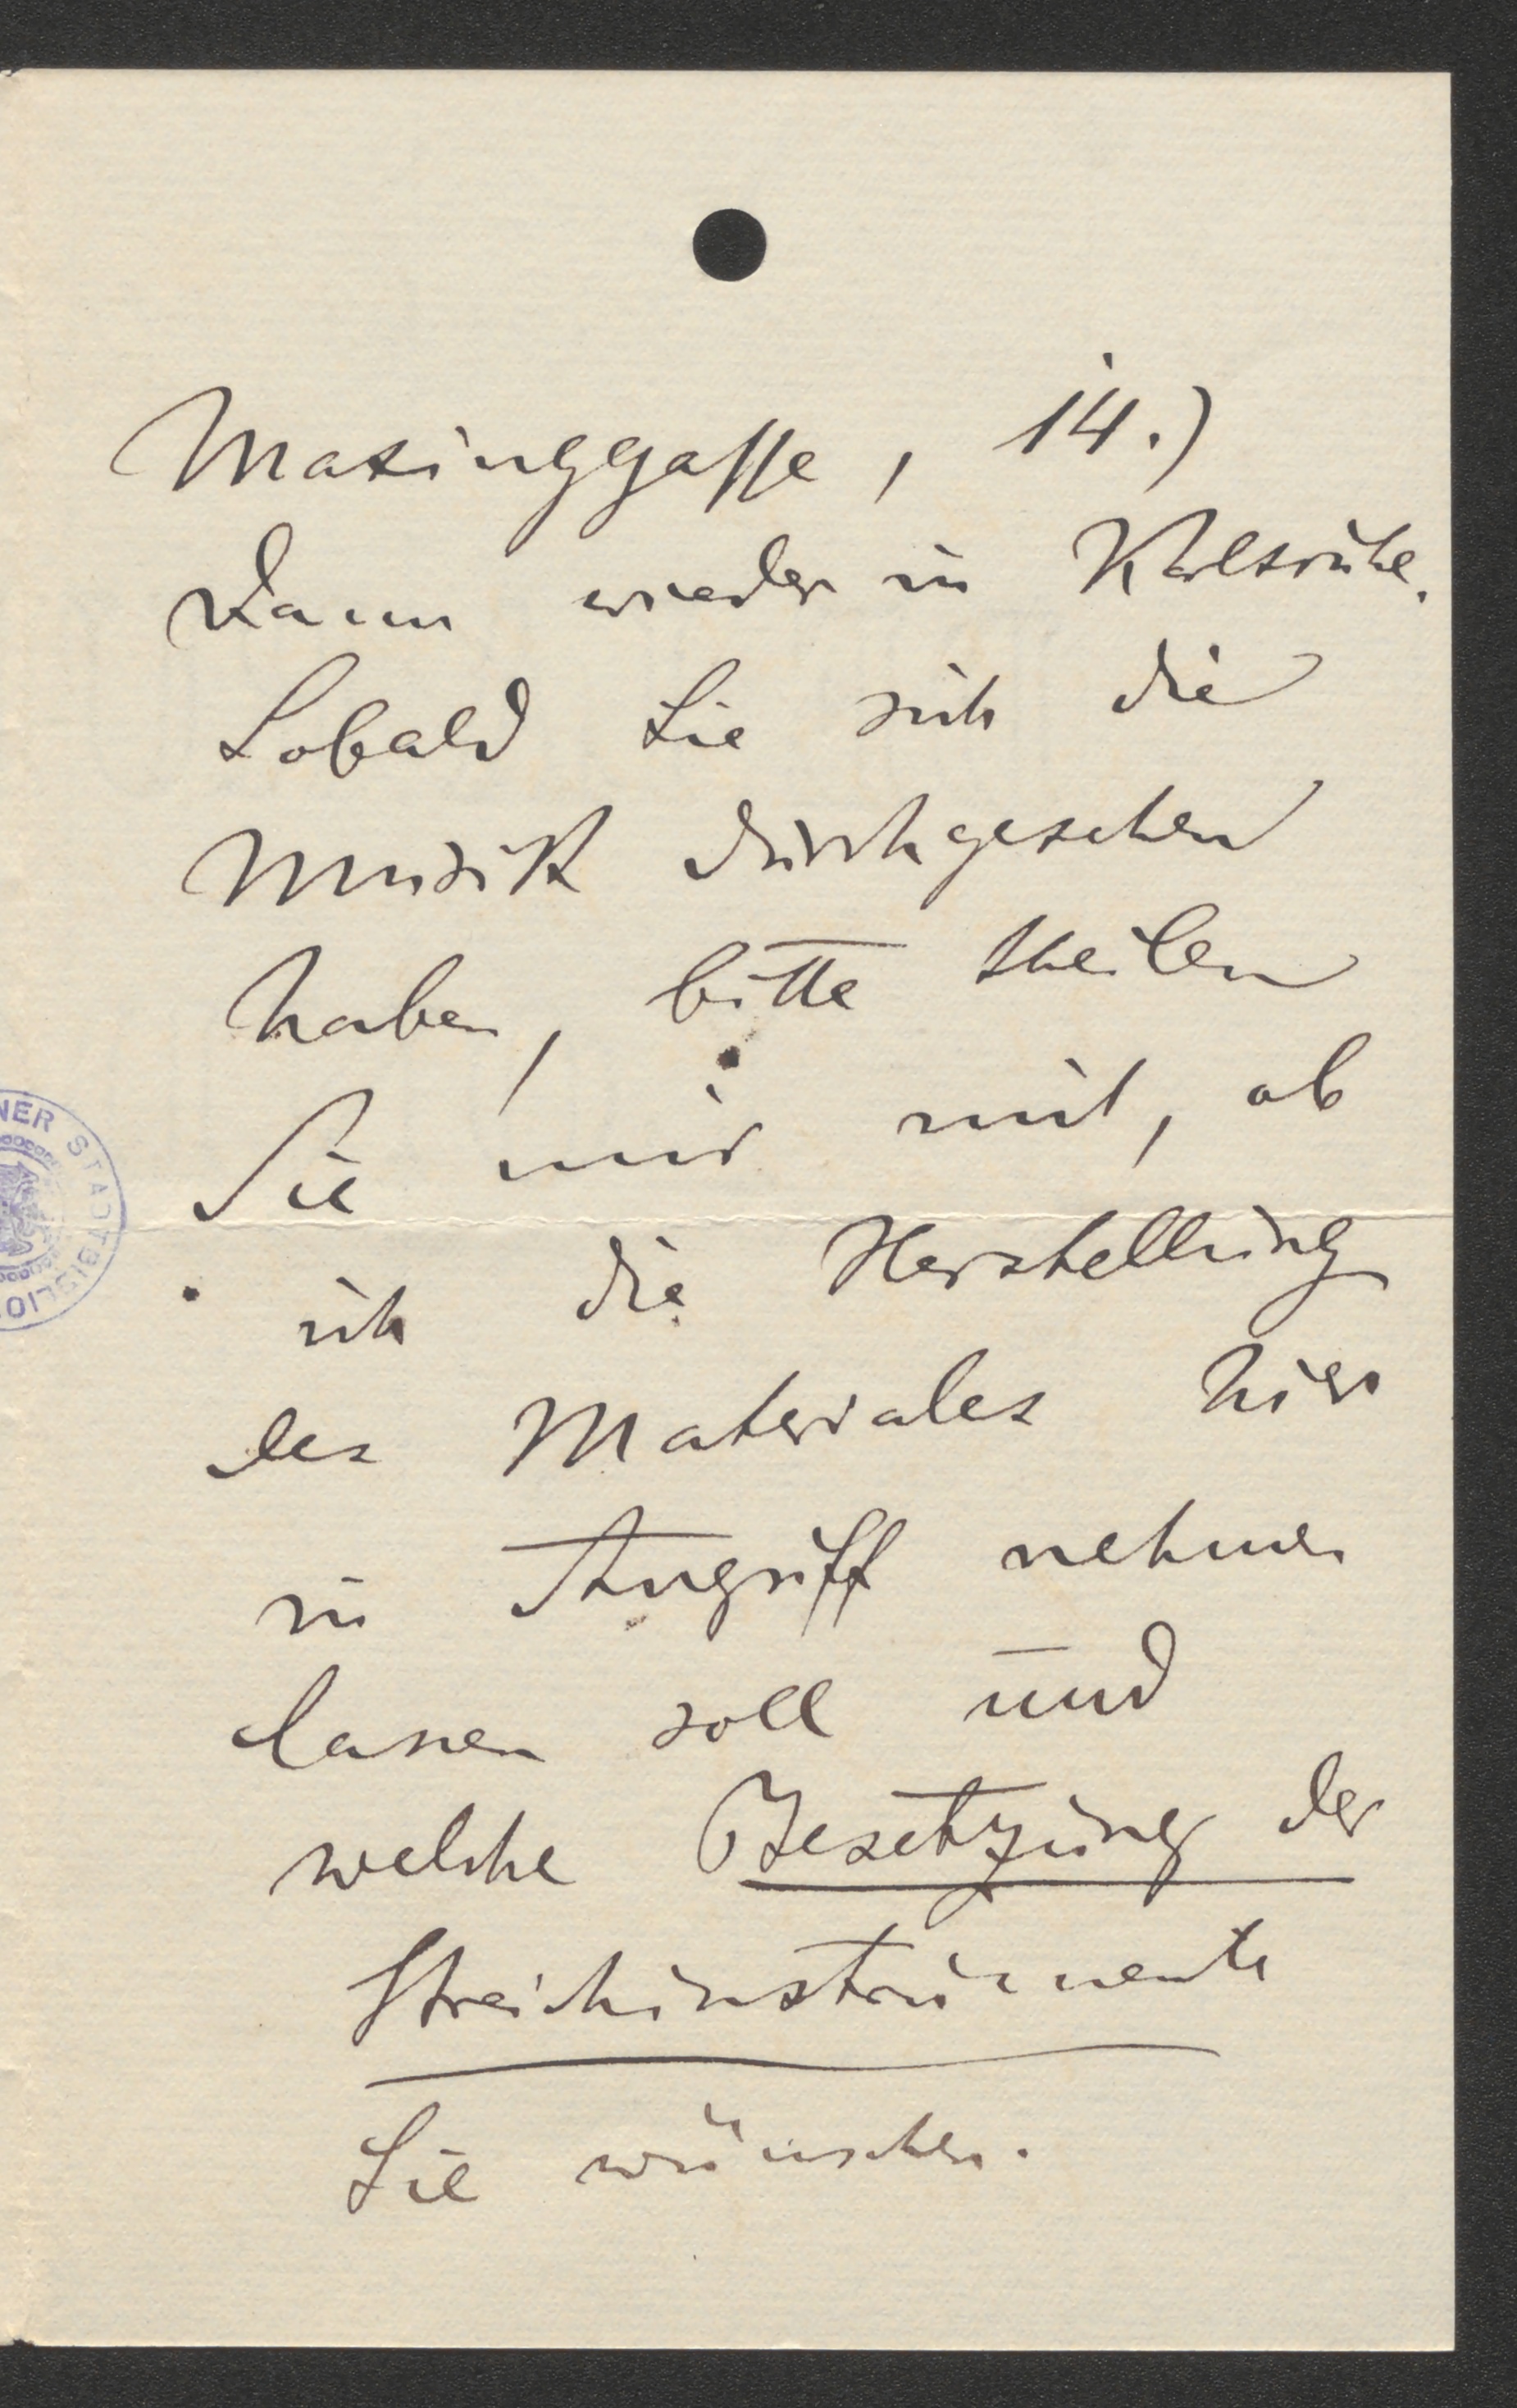 Maxinggasse, 14.)
Dann wieder in Karlsruhe.
Sobald Sie sich die
Musik durchgesehen
haben, bitte theilen
Sie mir mit, ob
ich die Herstellung
des Materiales hier
in Angriff nehmen
lassen soll und
welche Besetzung der
Streichinstrumente
Sie wünschen.
NER STADTBIBLIO